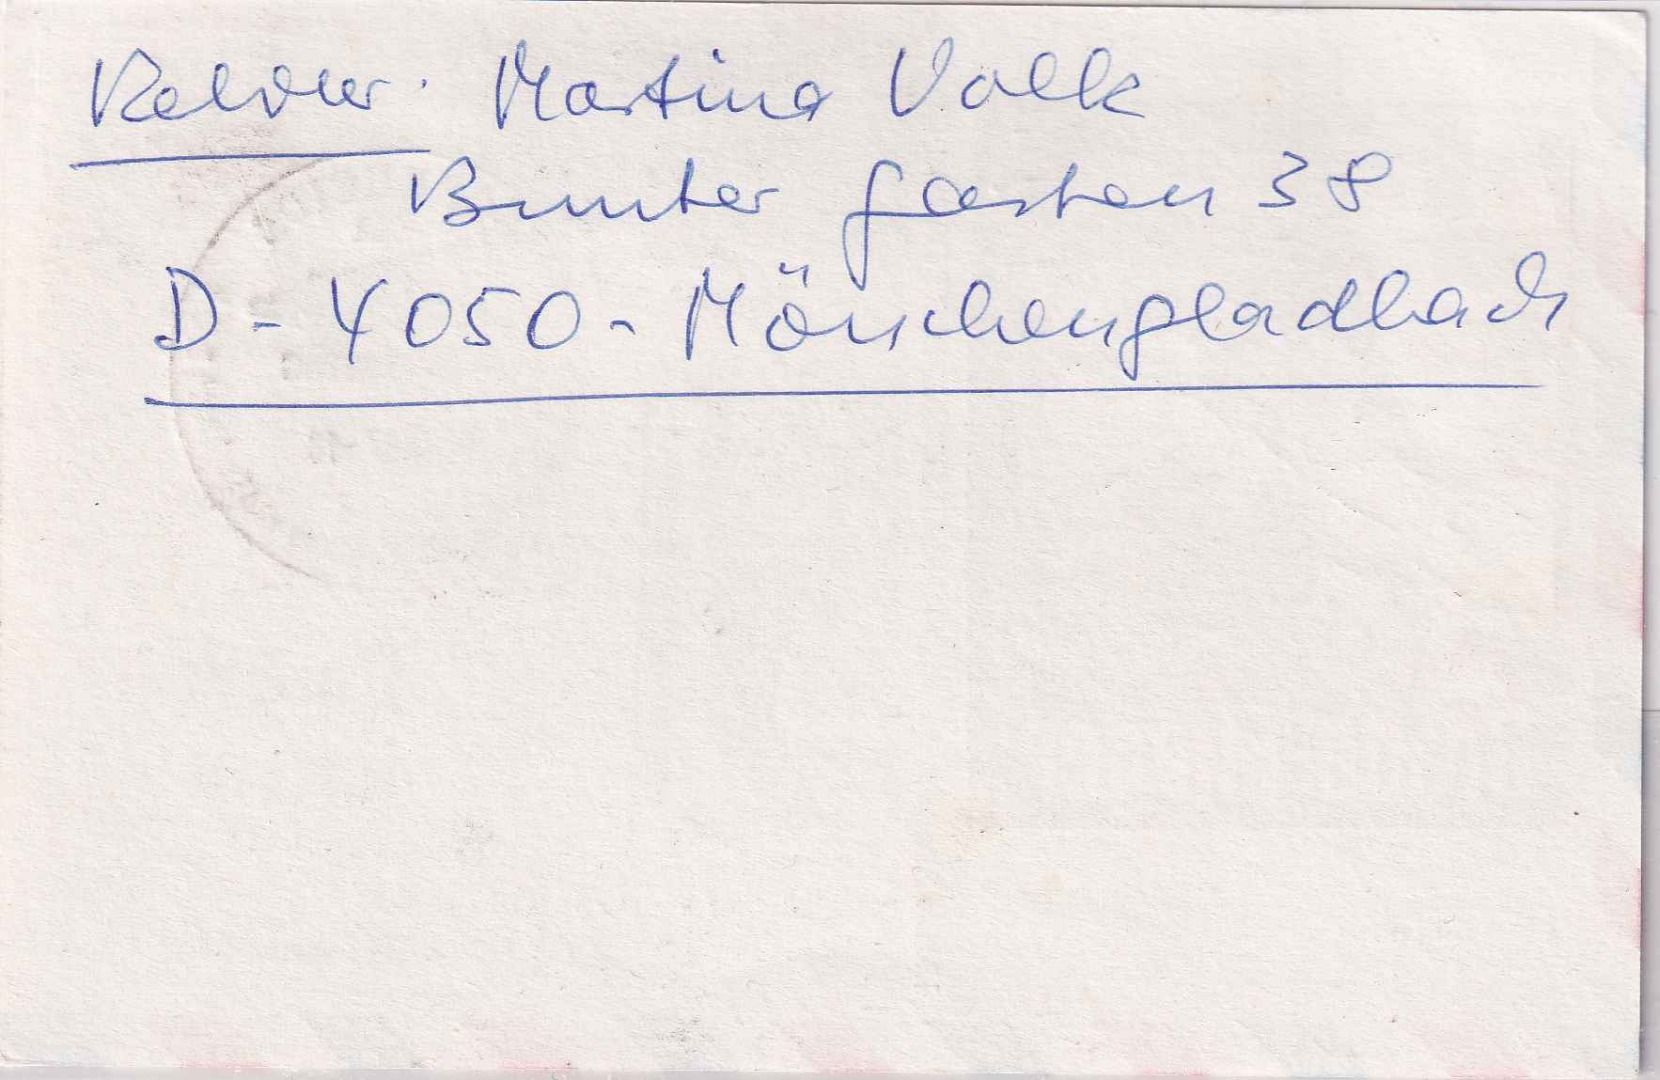 Martina Volk
Bunter Garten 38
D - 4050 - Mönchengladbach